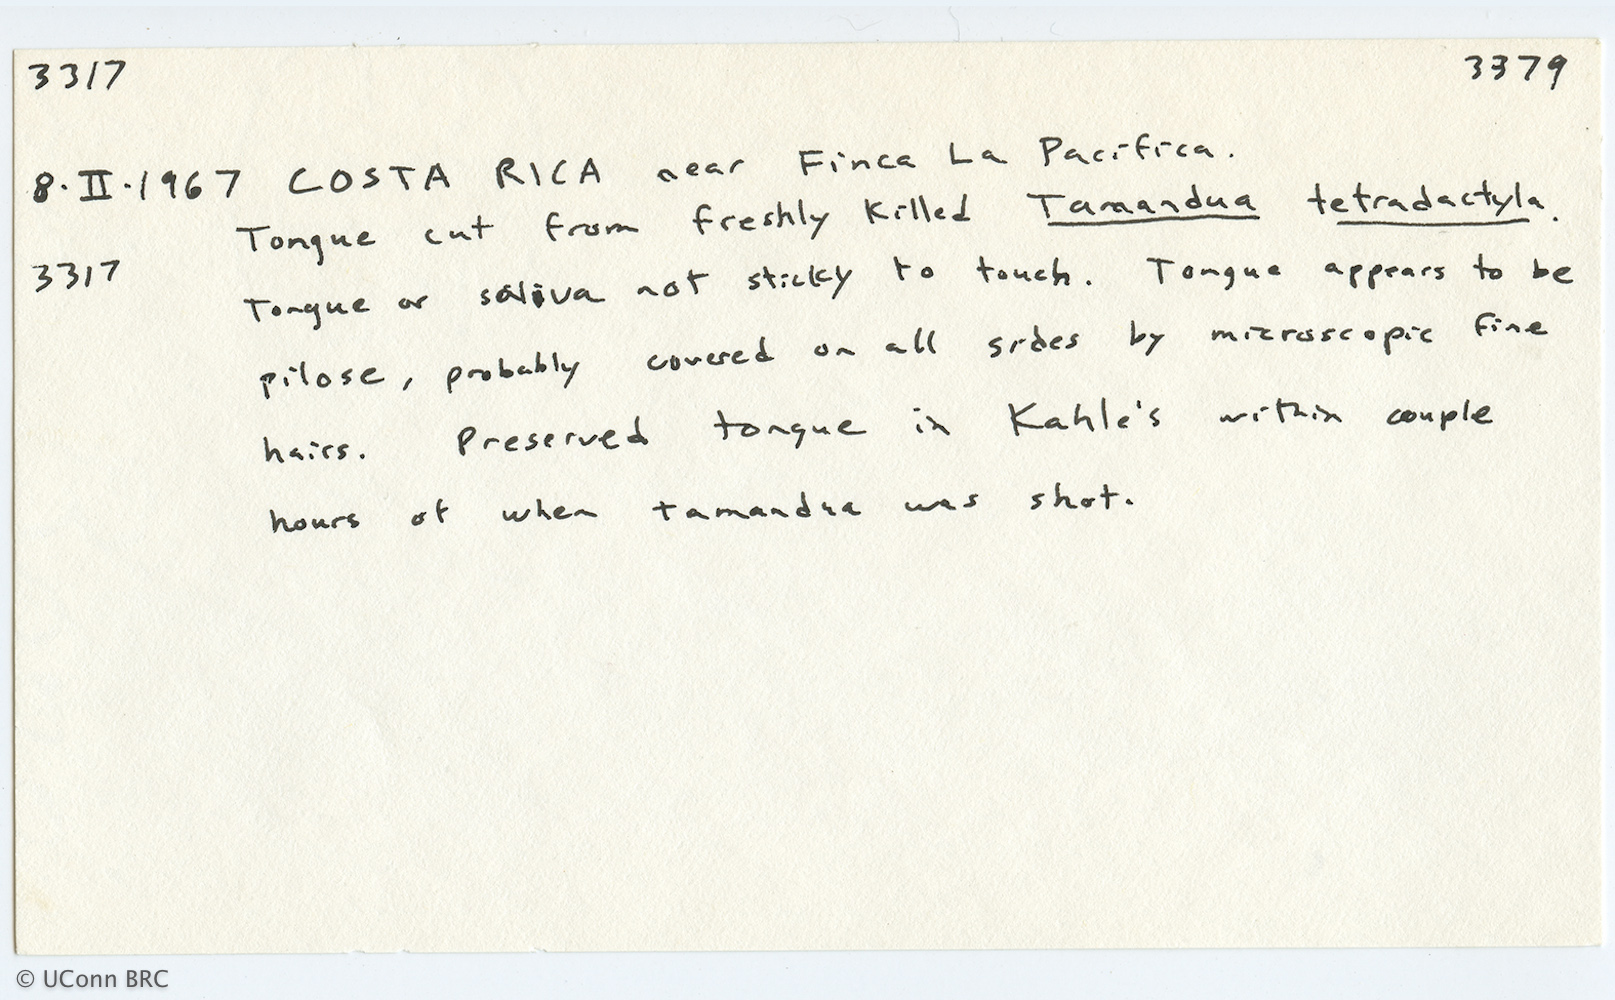 3317 3379
8·II·1967 COSTA RICA near Finca La Pacifica.
Tongue cut from freshly killed Tamandua tetradactyla.
3317
Tongue or saliva not sticky to touch. Tongue appears to be
pilose, probably covered on all sides by microscopic fine
hairs. Preserved tongue in Kahle's within couple
hours of when tamandua was shot.
© UConn BRC